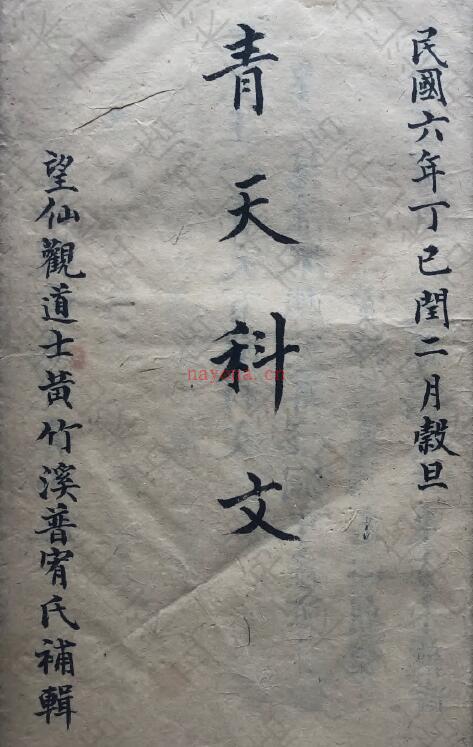 民國六年丁巳閏二月榖旦
青天科文
望仙觀道士黄竹溪普宥氏補輯
nayona.cn